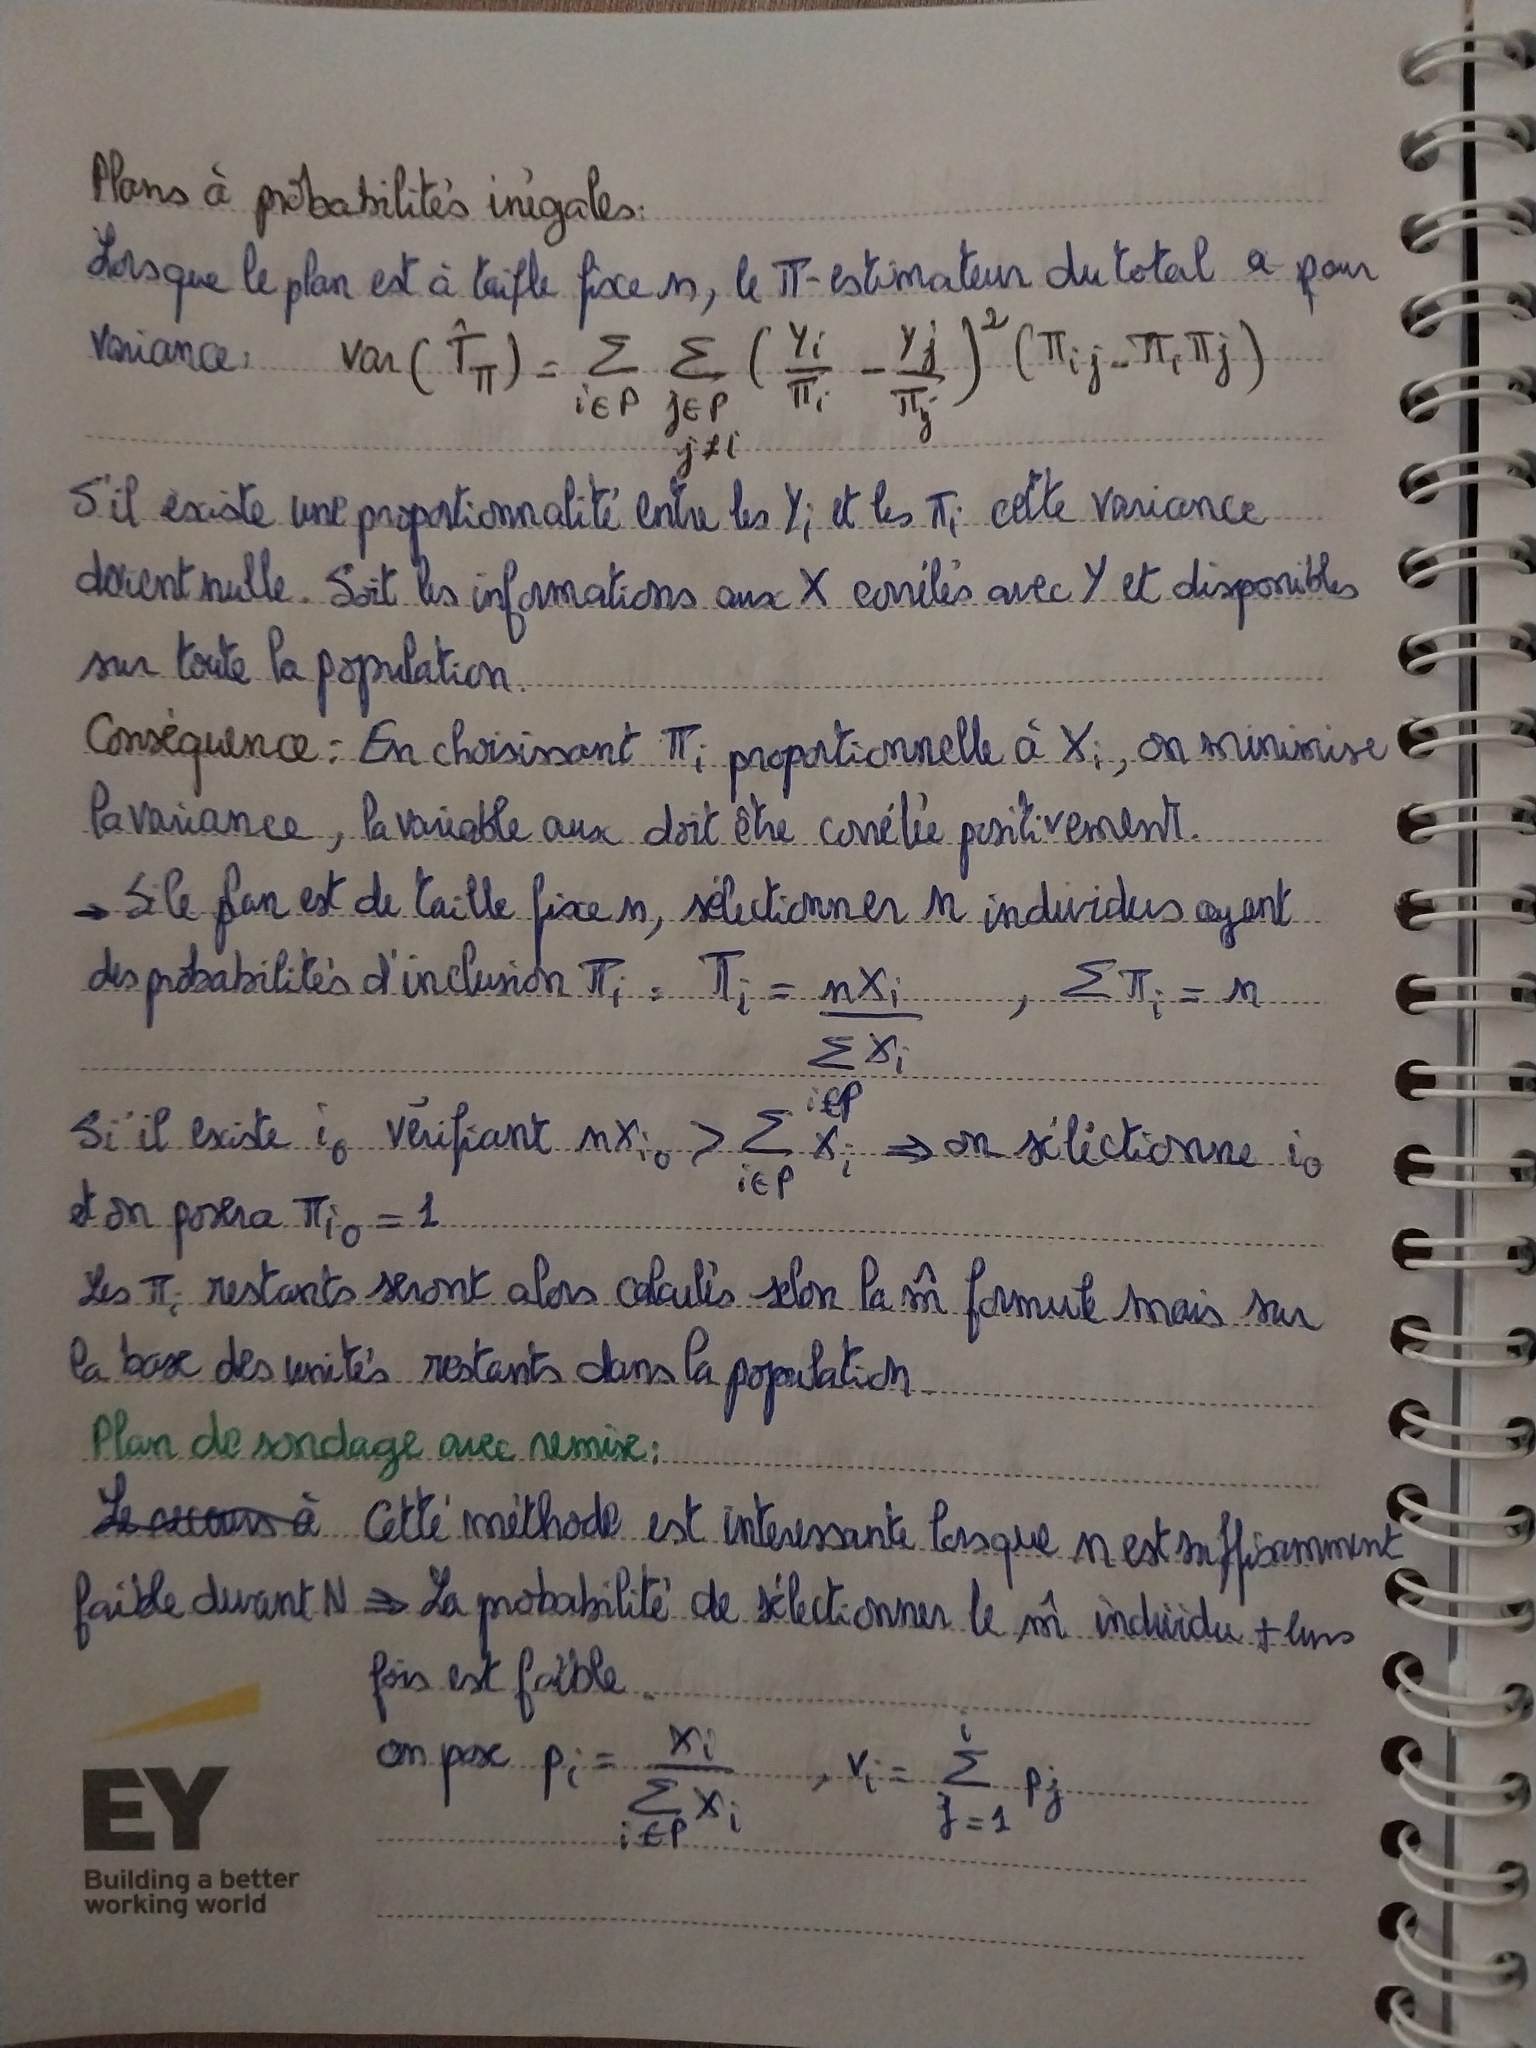 Plans à probabilités inégales:
Lorsque le plan est à taille fixe n, le π-estimateur du total a pour
variance: var(T̂π) = Σ i∈P Σ j∈P j≠i (Yi/πi - Yj/πj)² (πij - πi πj)
S'il existe une proportionnalité entre les Yi et les πi cette variance
devient nulle. Soit les informations aux X corrélés avec Y et disponibles
sur toute la population.
Conséquence: En choisissant πi proportionnelle à Xi, on minimise
la variance, la variable aux doit être corrélée positivement.
→ Si le plan est de taille fixe n, sélectionner n individus ayant
des probabilités d'inclusion πi : πi = nXi / Σ i∈P Xi , Σ πi = n
Si il existe i0 vérifiant nXi0 > Σ i∈P Xi ⇒ on séléctionne i0
et on posera πi0 = 1
Les πi restants seront alors calculés selon la m̂ formule mais sur
la base des unités restants dans la population.
Plan de sondage avec remise:
Le recours à Cette méthode est interessante lorsque n est suffisamment
faible devant N ⇒ La probabilité de sélectionner le m̂ individu +lurs
fois est faible.
on pose pi = Xi / Σ i∈P Xi , vi = Σ j=1 i pj
EY
Building a better
working world